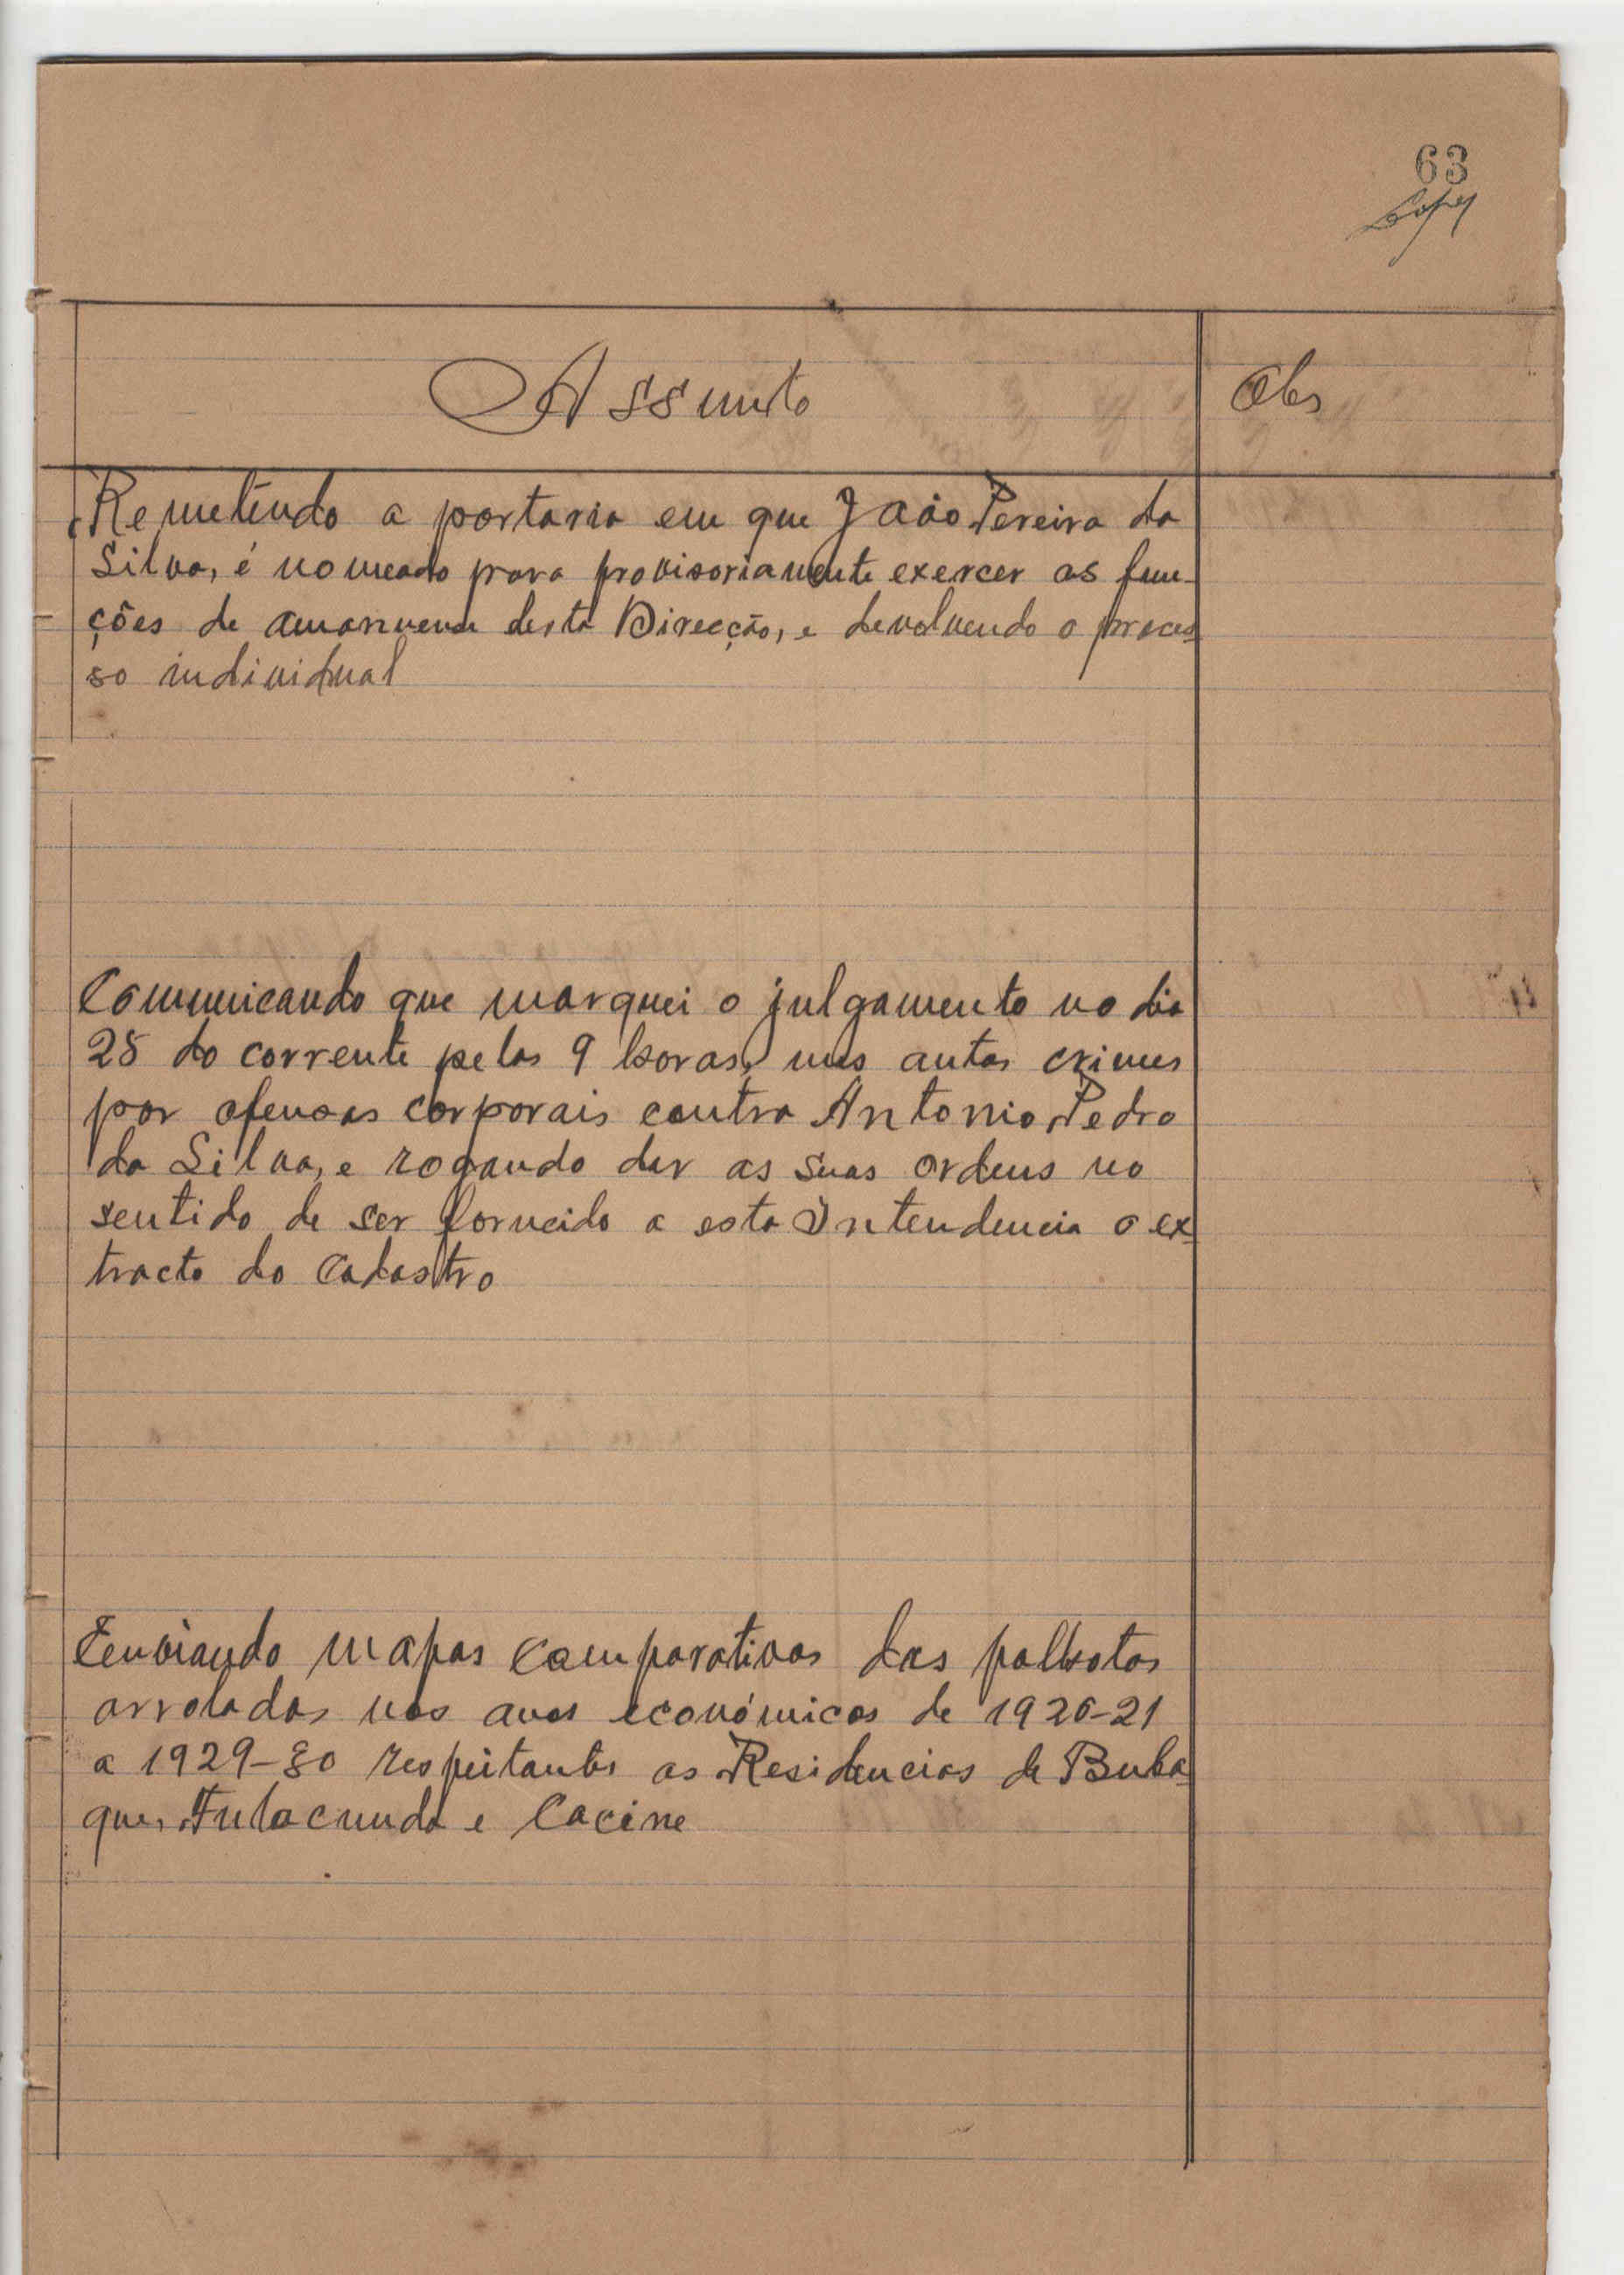 63
Lopes
Assunto
Obs
Remetendo a portaria em que João Pereira da
Silva, é nomeado para provisoriamente exercer as fun-
ções de amanuense desta Direcção, e devolvendo o proces-
so individual
Comunicando que marquei o julgamento no dia
28 do corrente pelas 9 horas, nos autos crimes
por ofensas corporais contra Antonio Pedro
da Silva, e rogando dar as suas ordens no
sentido de ser fornecido a esta Intendencia o ex-
tracto do Cadastro
Enviando mapas comparativos das palhotas
arroladas nos anos económicos de 1920-21
a 1929-30 respeitantes as Residencias de Buba
que, Fulacunda e Cacine